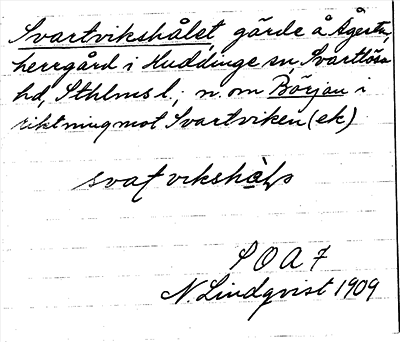 Svartvikshålet, gärde å Ågesta,
herrgård i Huddinge sn, Svartlösa
hd, Sthlms l; n. om Början i
riktning mot Svartviken (ek)
SOA 7
N. Lindqvist 1909